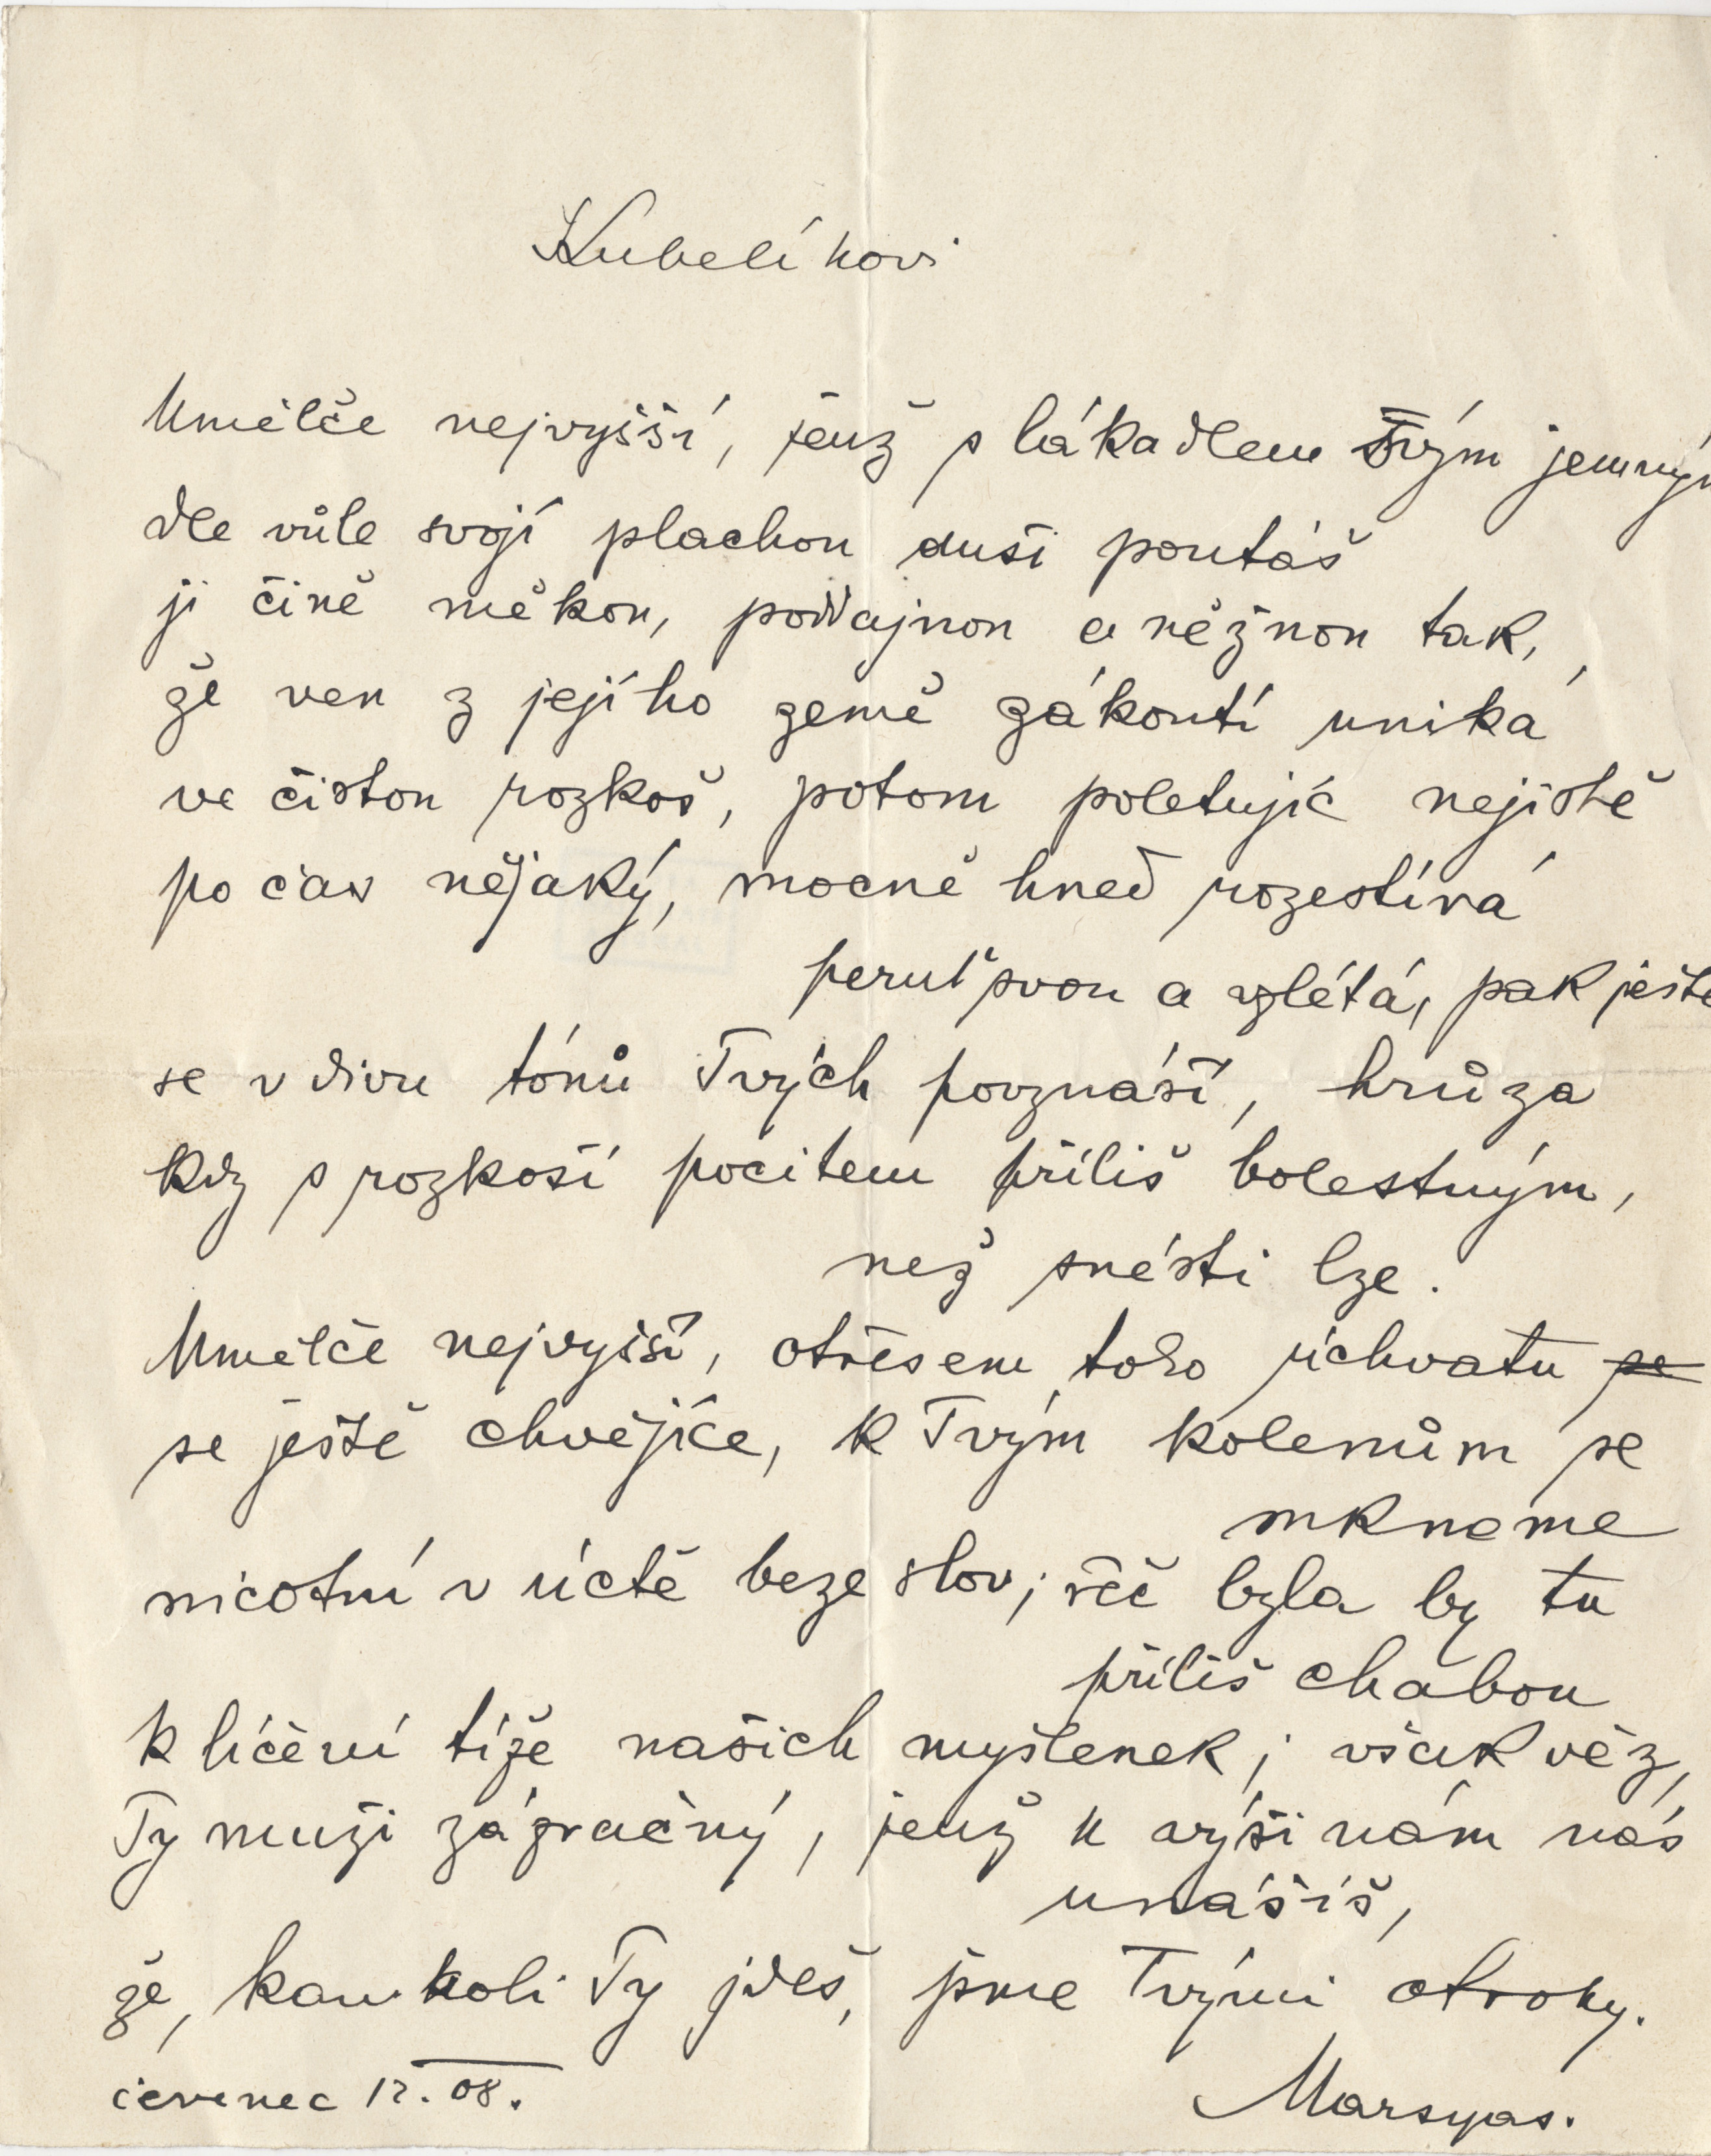 Kubelíkovi
Umělče nejvyšší, jenž s lákadlem Tvým jemným
dle vůle svojí plachou duši poutáš
ji čině měkou, poddajnou a něžnou tak,
že ven z jejího země zákoutí uniká
ve čistou rozkoš, potom poletujíc nejistě
po čas nějaký, mocně hned rozestírá
peruť svou a vzlétá, pak ještě
se v divu tónů Tvých povznáší, hrůza
kdy s rozkoší pocitem příliš bolestným,
než snésti lze.
Umělče nejvyšší, otřesem toho úchvatu se
se ještě chvějíce, k Tvým kolenům se
mkneme
nicotní v úctě beze slov; řeč byla by tu
příliš chabou
k líčení tíže našich myšlenek; však věz,
Ty muži zázračný, jenž k výšinám nás
unášíš,
že, kamkoli Ty jdeš, jsme Tvými otroky.
červenec 12. 08.
Marsyas.